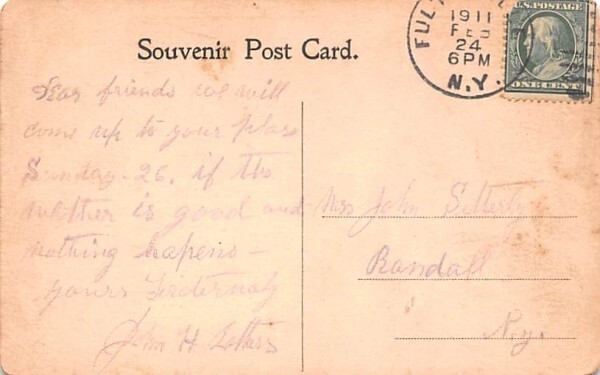 Souvenir Post Card.
FUL
1911
FEB
24
6 PM
N.Y.
U.S. POSTAGE
ONE CENT
Dear friends we will
come up to your place
Sunday-26. if the
wether is good and
nothing hapens-
yours Fraternaly
John H
Mrs John
Randall
N.y.